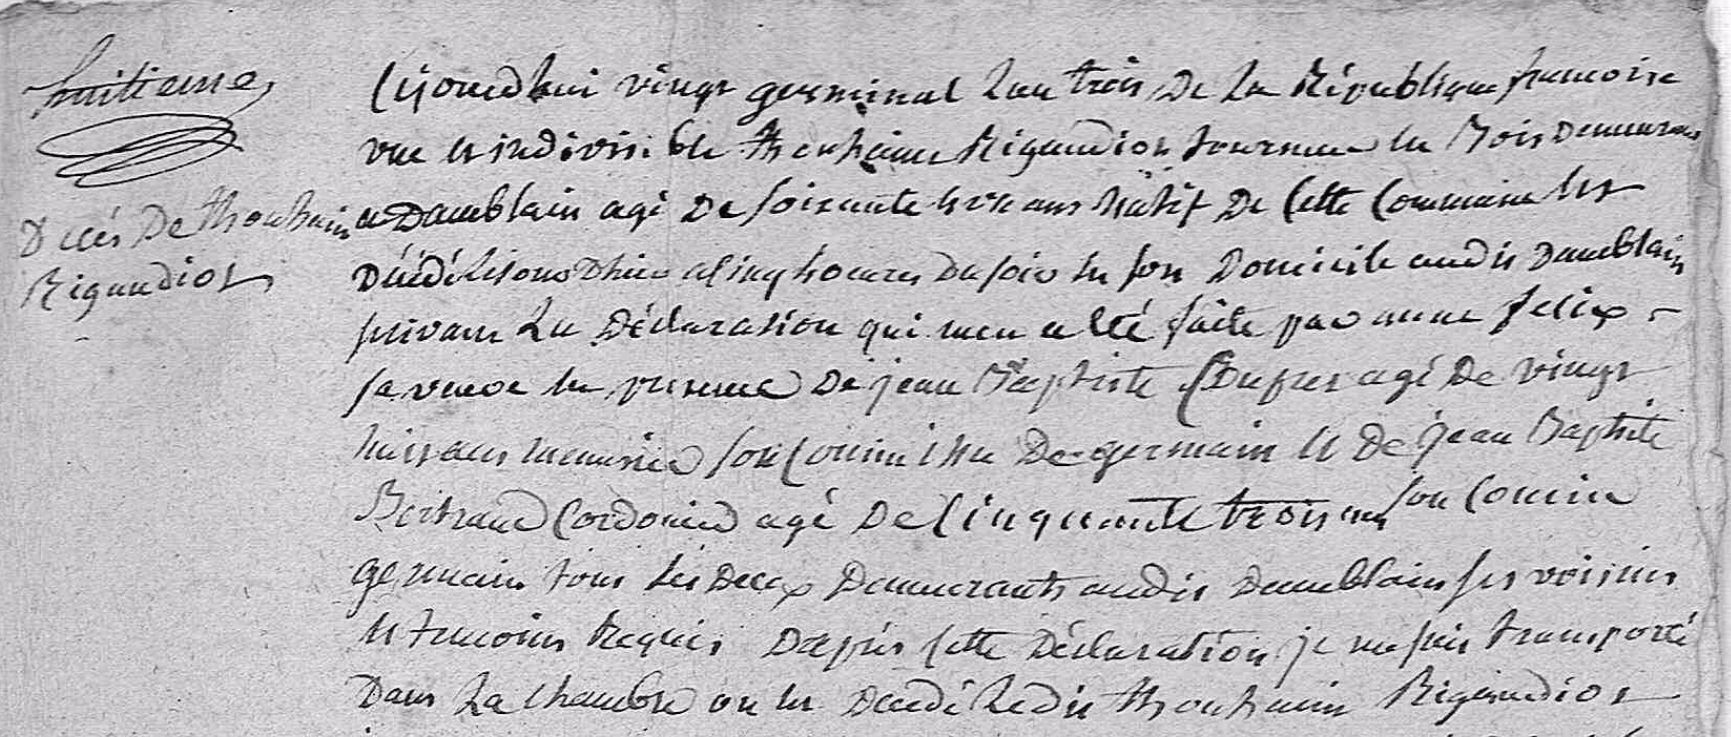 huitieme
Décés De thouhain
Rigaudiot
Cejourdhui vingt germinal Lan trois De La République francoise
une et indivisible thouhain Rigaudiot tourneur en Bois Demeurant
a Damblain agé De soixante ans Natif De Cette Commune est
Décédé a cinq heures Du soir en son Domicile audit Damblain
suivant La Déclaration qui men a été faite par anne felix
sa veuve en presence De jean Baptiste agé De vingt
huit ans menuisier son cousin issu De germain et De jean Baptiste
Bertrand Cordonier agé De Cinquante trois ans son Cousin
germain tous les Deux Demeurants audit Damblain ses voisins
et temoins Requis Dapres Cette Déclaration je me suis transporté
Dans La Chambre ou est Décédé Ledit thouhain Rigaudiot